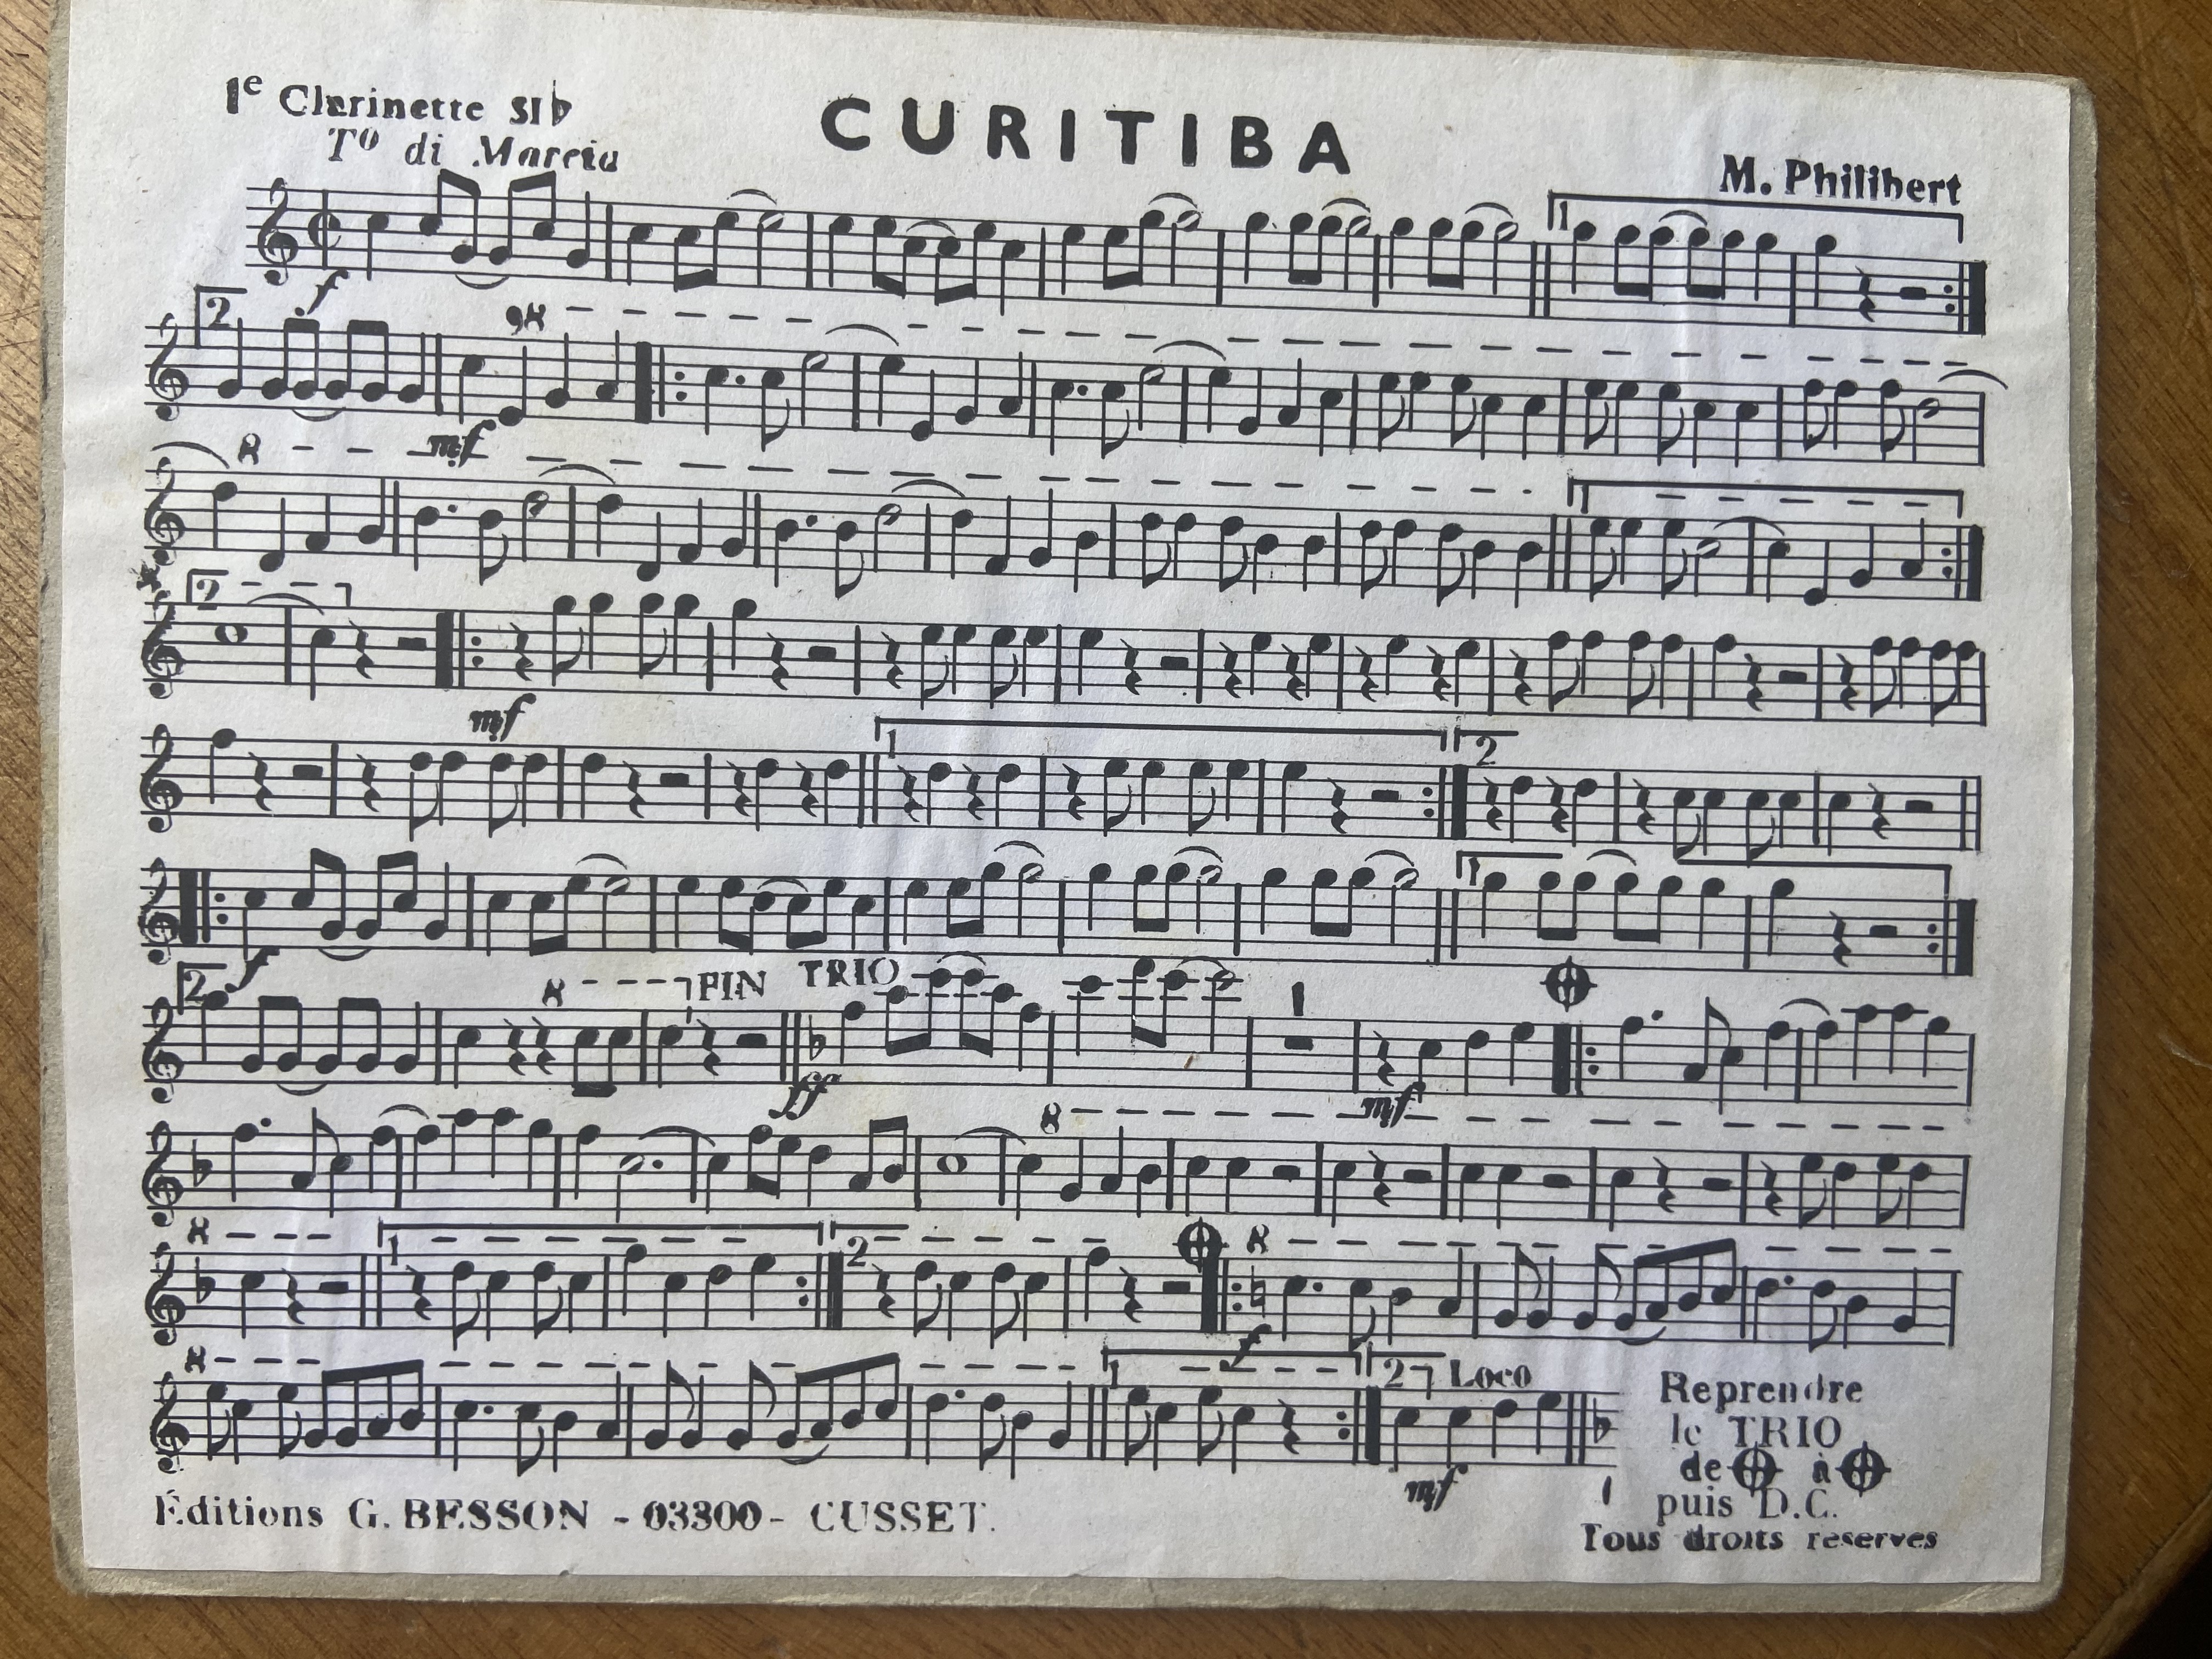 1e Clarinette SI♭
CURITIBA
To di Marcia
M. Philibert
f
1
2
8
mf
8
1
2
mf
1
2
f
1
2
8
FIN
TRIO
1
ff
mf
8
8
1
2
8
f
8
1
2
Loco
mf
Reprendre
le TRIO
de à
puis D.C.
Éditions G. BESSON - 03300 - CUSSET.
Tous droits reserves